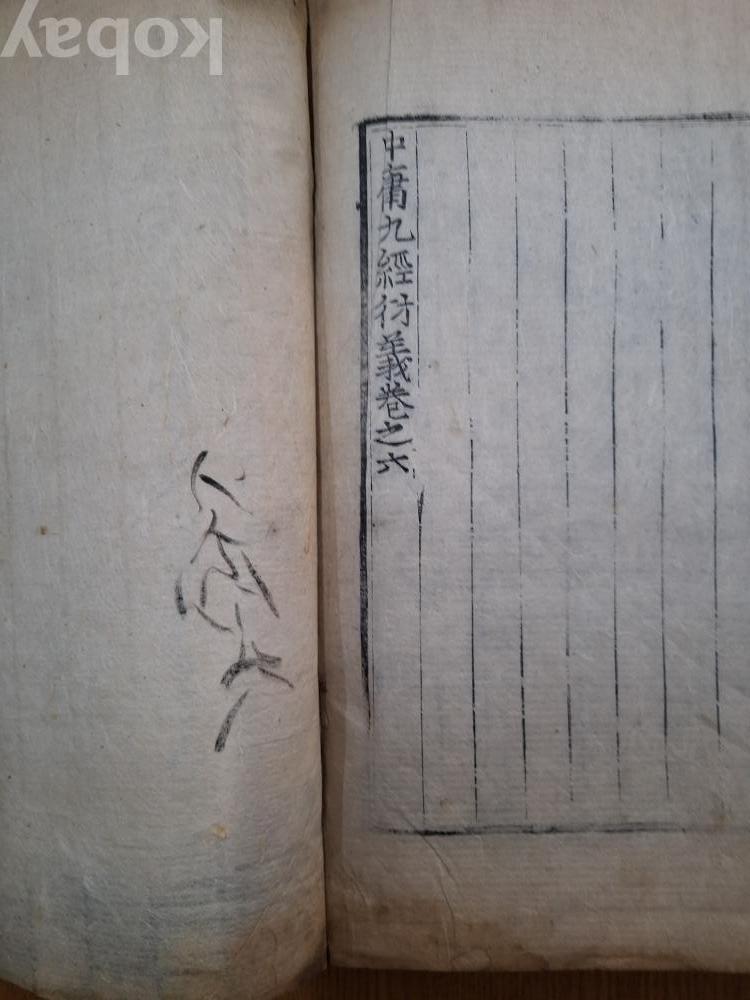 kobay
中庸九經衍義卷之六